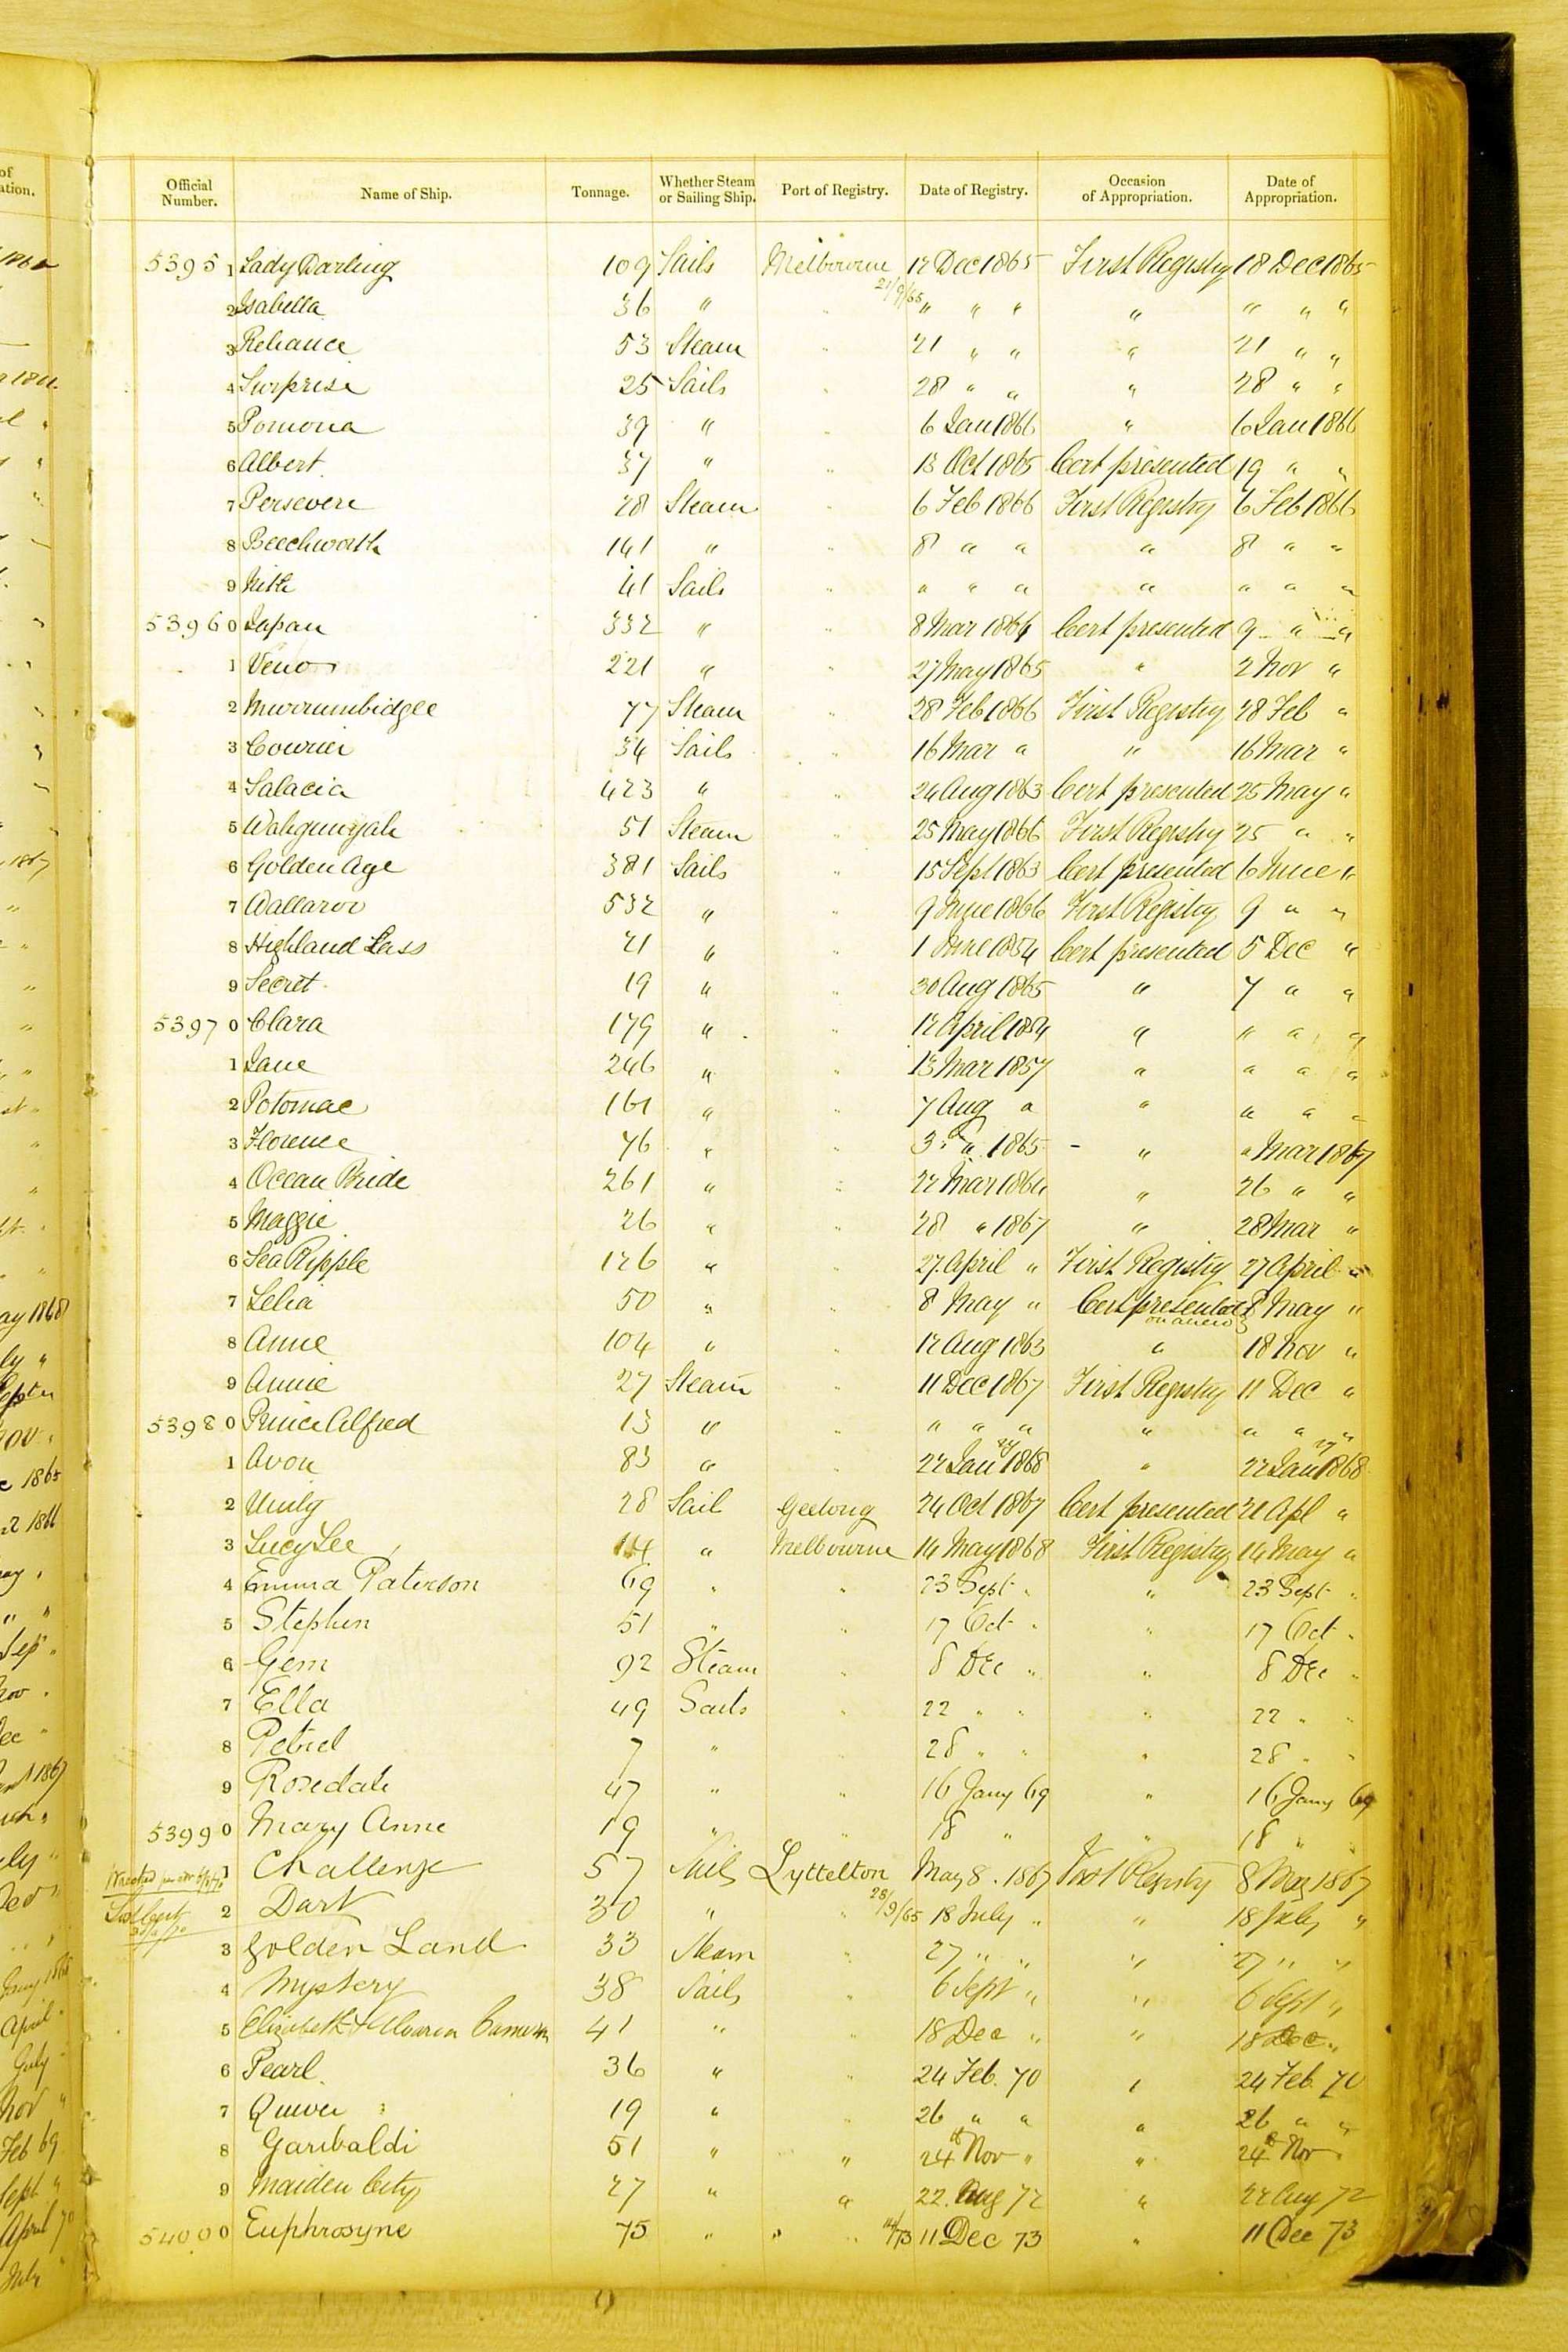 Official Number. Name of Ship. Tonnage. Whether Steam or Sailing Ship. Port of Registry. Date of Registry. Occasion of Appropriation. Date of Appropriation.
5395 1 Lady Darling 109 Sails Melbourne 12 Dec 1865 First Registry 18 Dec 1865
21/9/65
2 Isabella 36 " " " " " " " " "
3 Reliance 53 Steam " 21 " " " 21 " "
4 Surprise 25 Sails " 28 " " " 28 " "
5 Pomona 39 " " 6 Jan 1866 " 6 Jan 1866
6 Albert 37 " " 13 Oct 1865 Cert presented 19 " "
7 Persevere 28 Steam " 6 Feb 1866 First Registry 6 Feb 1866
8 Beechworth 141 " " 8 " " " 8 " "
9 Nith 41 Sails " " " " " " " "
5396 0 Japan 332 " " 8 Mar 1866 Cert presented 9 " "
1 Veno 221 " " 27 May 1865 " 2 Nov "
2 Murrumbidgee 77 Steam " 28 Feb 1866 First Registry 28 Feb "
3 Courier 34 Sails " 16 Mar " " 16 Mar "
4 Salacia 423 " " 24 Aug 1863 Cert presented 25 May "
5 Wahgunyah 51 Steam " 25 May 1866 First Registry 25 " "
6 Golden Age 381 Sails " 15 Sept 1863 Cert presented 6 June "
7 Wallaroo 532 " " 9 June 1866 First Registry 9 " "
8 Highland Lass 21 " " 1 June 1854 Cert presented 5 Dec "
9 Secret 19 " " 30 Aug 1865 " 7 " "
5397 0 Clara 179 " " 12 April 1854 " " " "
1 Jane 246 " " 13 Mar 1857 " " " "
2 Potomac 161 " " 7 Aug " " " " "
3 Florence 76 " " 3 " 1865 " " Mar 1867
4 Ocean Bride 261 " " 22 Mar 1864 " 26 " "
5 Maggie 26 " " 28 " 1867 " 28 Mar "
6 Sea Ripple 126 " " 27 April " First Registry 27 April "
7 Lelia 50 " " 8 May " Cert presented 8 May "
8 Anne 104 " " 12 Aug 1863 " 18 Nov "
9 Annie 27 Steam " 11 Dec 1867 First Registry 11 Dec "
5398 0 Prince Alfred 13 " " " " " " " " "
1 Avon 83 " " 22 Jan 1868 " 22 Jan 1868
2 Unity 28 Sail Geelong 24 Oct 1867 Cert presented 21 Apl "
3 Lucy Lee 114 " Melbourne 14 May 1868 First Registry 14 May "
4 Emma Paterson 69 " " 23 Sept " " 23 Sept "
5 Stephen 51 " " 17 Oct " " 17 Oct "
6 Gem 92 Steam " 8 Dec " " 8 Dec "
7 Ella 49 Sails " 22 " " " 22 " "
8 Petrel 7 " " 28 " " " 28 " "
9 Rosedale 47 " " 16 Jany 69 " 16 Jany 69
5399 0 Mary Anne 19 " " 18 " " 18 "
1 Challenge 57 Sails Lyttelton May 8. 1867 First Registry 8 May 1867
2 Dart 30 " " 28/9/65 18 July " " 18 July "
3 Golden Land 33 Steam " 27 " " " 27 " "
4 Mystery 38 Sails " 6 Sept " " 6 Sept "
5 Elizabeth & Cameron 41 " " 18 Dec " " 18 Dec "
6 Pearl 36 " " 24 Feb. 70 " 24 Feb. 70
7 Quiver 19 " " 26 " " " 26 " "
8 Garibaldi 51 " " 24th Nov " " 24th Nov "
9 Maiden City 27 " " 22 Aug 72 " 22 Aug 72
5400 0 Euphrosyne 75 " " 11 Dec 73 " 11 Dec 73